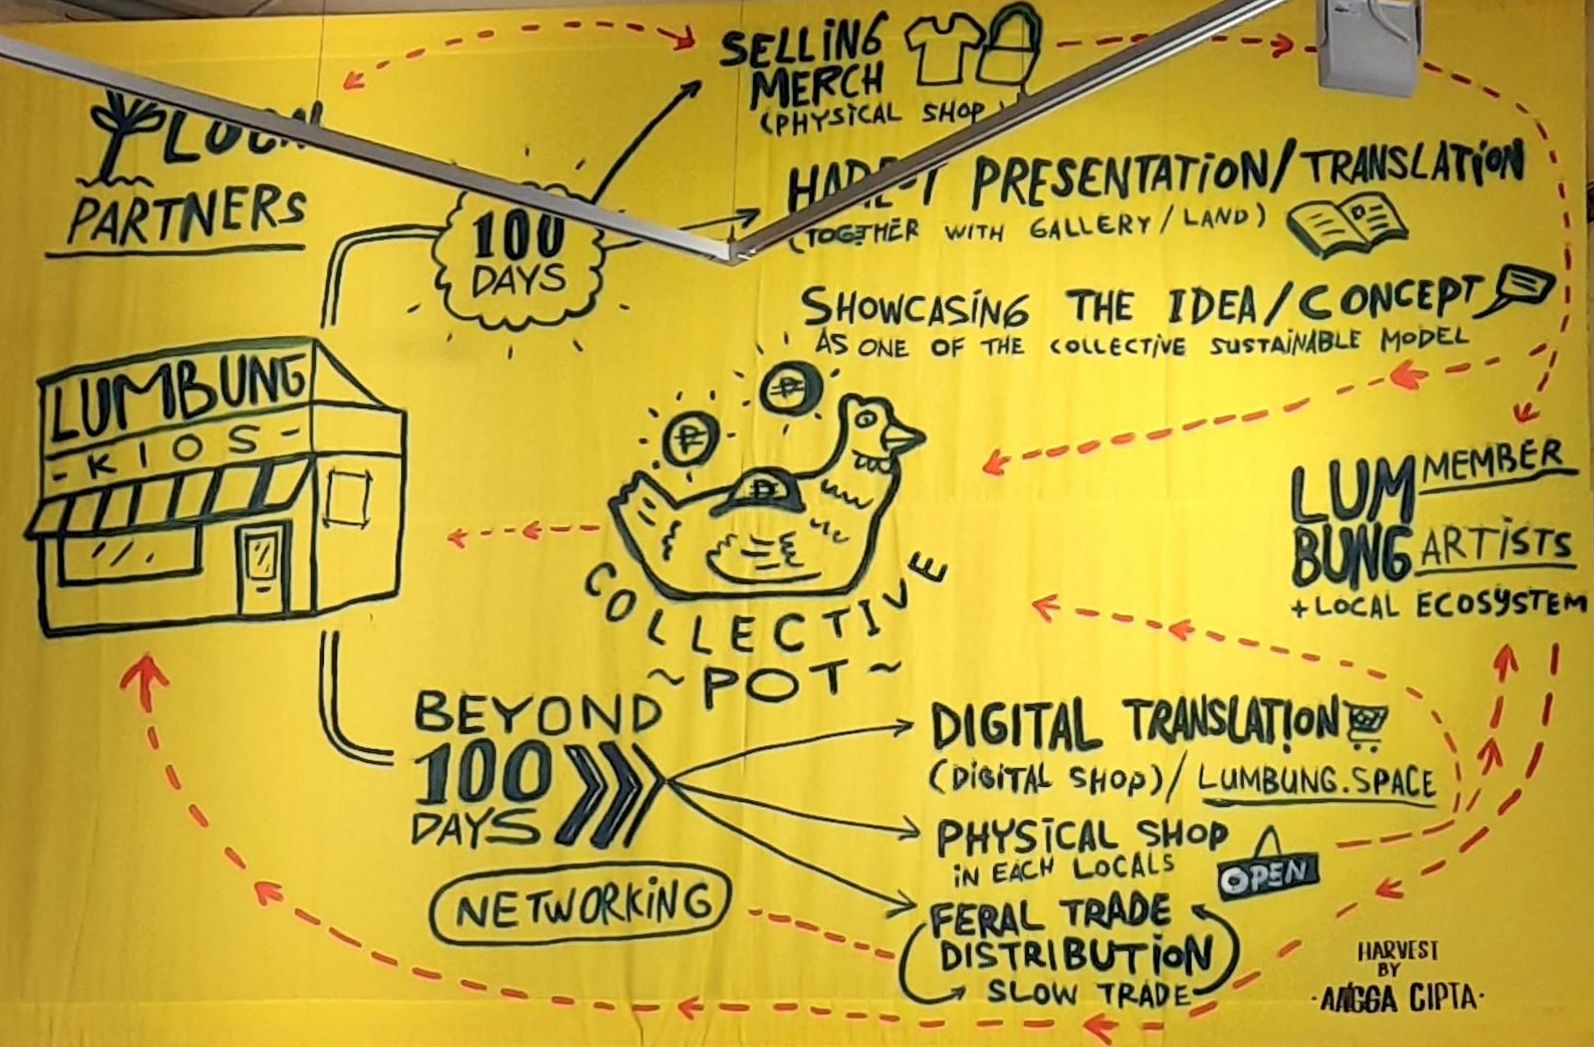 SELLING
MERCH
(PHYSICAL SHOP)
PARTNERS
100
DAYS
PRESENTATION/TRANSLATION
(TOGETHER WITH GALLERY/LAND)
SHOWCASING THE IDEA/CONCEPT
AS ONE OF THE COLLECTIVE SUSTAINABLE MODEL
LUMBUNG
-KIOS-
COLLECTIVE
~POT~
LUM MEMBER
BUNG ARTISTS
+ LOCAL ECOSYSTEM
BEYOND
100
DAYS
NETWORKING
DIGITAL TRANSLATION
(DIGITAL SHOP)/ LUMBUNG.SPACE
PHYSICAL SHOP
IN EACH LOCALS
OPEN
FERAL TRADE
DISTRIBUTION
SLOW TRADE
HARVEST
BY
CIPTA·